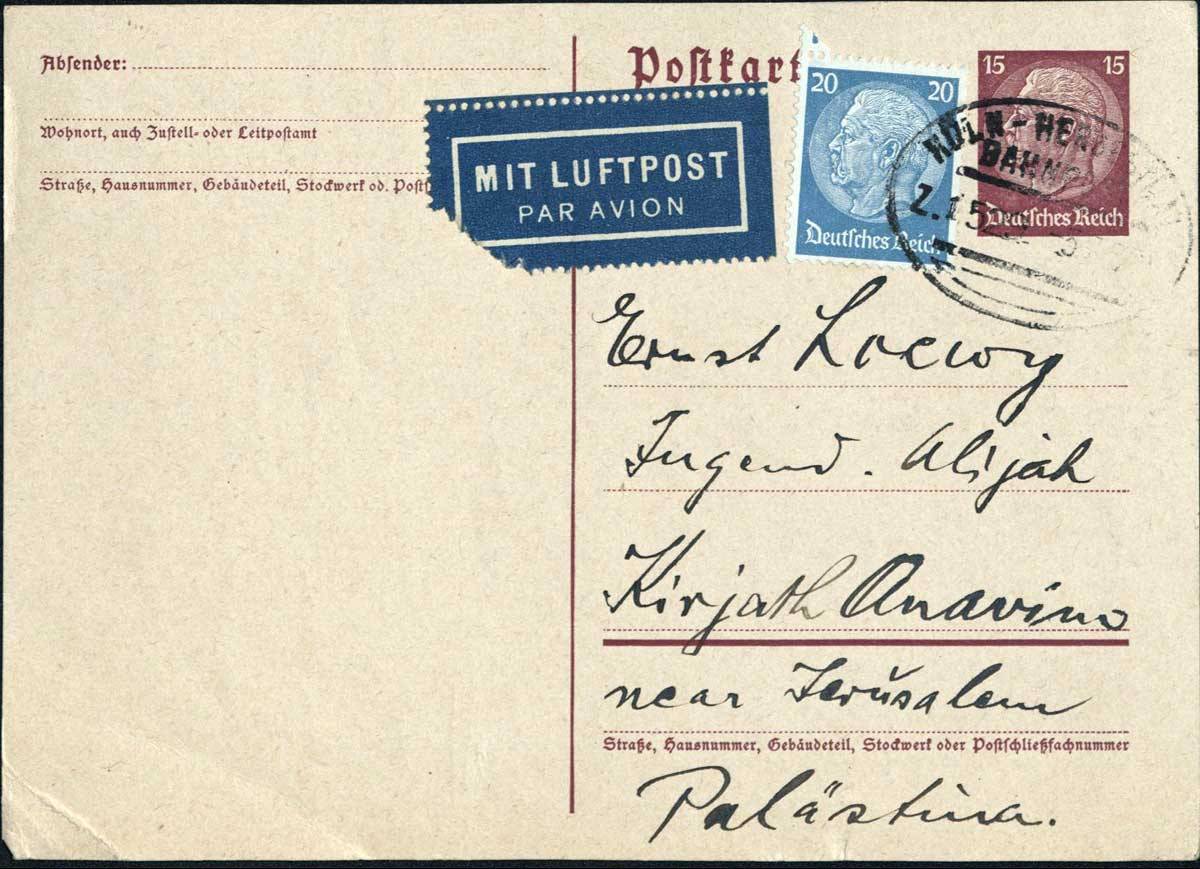 Absender:
Wohnort, auch Zustell- oder Leitpostamt
Straße, Hausnummer, Gebäudeteil, Stockwerk od.
MIT LUFTPOST
PAR AVION
Postkart
20 20
Deutsches Reich
15 15
Deutsches Reich
KÖLN -
BAHN
Z.15
Ernst Loewy
Jugend. Alijah
Kirjath Anavim
near Jerusalem
Straße, Hausnummer, Gebäudeteil, Stockwerk oder Postschließfachnummer
Palästina.